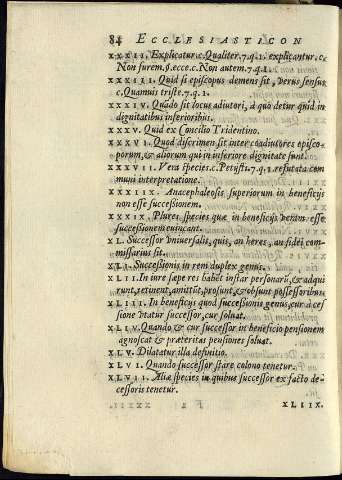 84 ECCLESIASTICON
XXXII. Explicatur.c. Qualiter.7.q.1. explicantur. c.
Non furem.&.ecce.c. Non autem.7.q.1.
XXXIII. Quid si episcopus demens sit, verus sensus
c. Quamuis triste.7.q.1.
XXXIV. Quãdo sit locus adiutori, à quo detur quid in
dignitatibus inferioribus.
XXXV. Quid ex Concilio Tridentino.
XXXVI. Quod discrimen sit inter coadiutores episco-
porum, & aliorum qui in inferiore dignitate sunt.
XXXVII. Vera species.c. Petisti.7.q.1. refutata com
muni interpretatione.
XXXIIX. Anacephaleosis superiorum in beneficijs
non esse successionem.
XXXIX. Plures species quæ in beneficijs veram esse
successionem euincant.
XL. Successor vniuersalis, quis, an heres, an fidei com-
missarius sit.
XLI. Successionis in rem duplex genus.
XLII. In iure sæpe res habet instar personarũ, & adqui
runt, retinent, amittũt, prosunt, & obsunt possessoribus
XLIII. In beneficijs quod successionis genus, cur à ces
sione vtatur successor, cur soluat.
XLIV. Quando & cur successor in beneficio pensionem
agnoscat & præteritas pensiones soluat.
XLV. Dilatatur illa definitio.
XLVI. Quando successor stare colono tenetur.
XLVII. Aliæ species in quibus successor ex facto de-
cessoris tenetur.
XLIIX.